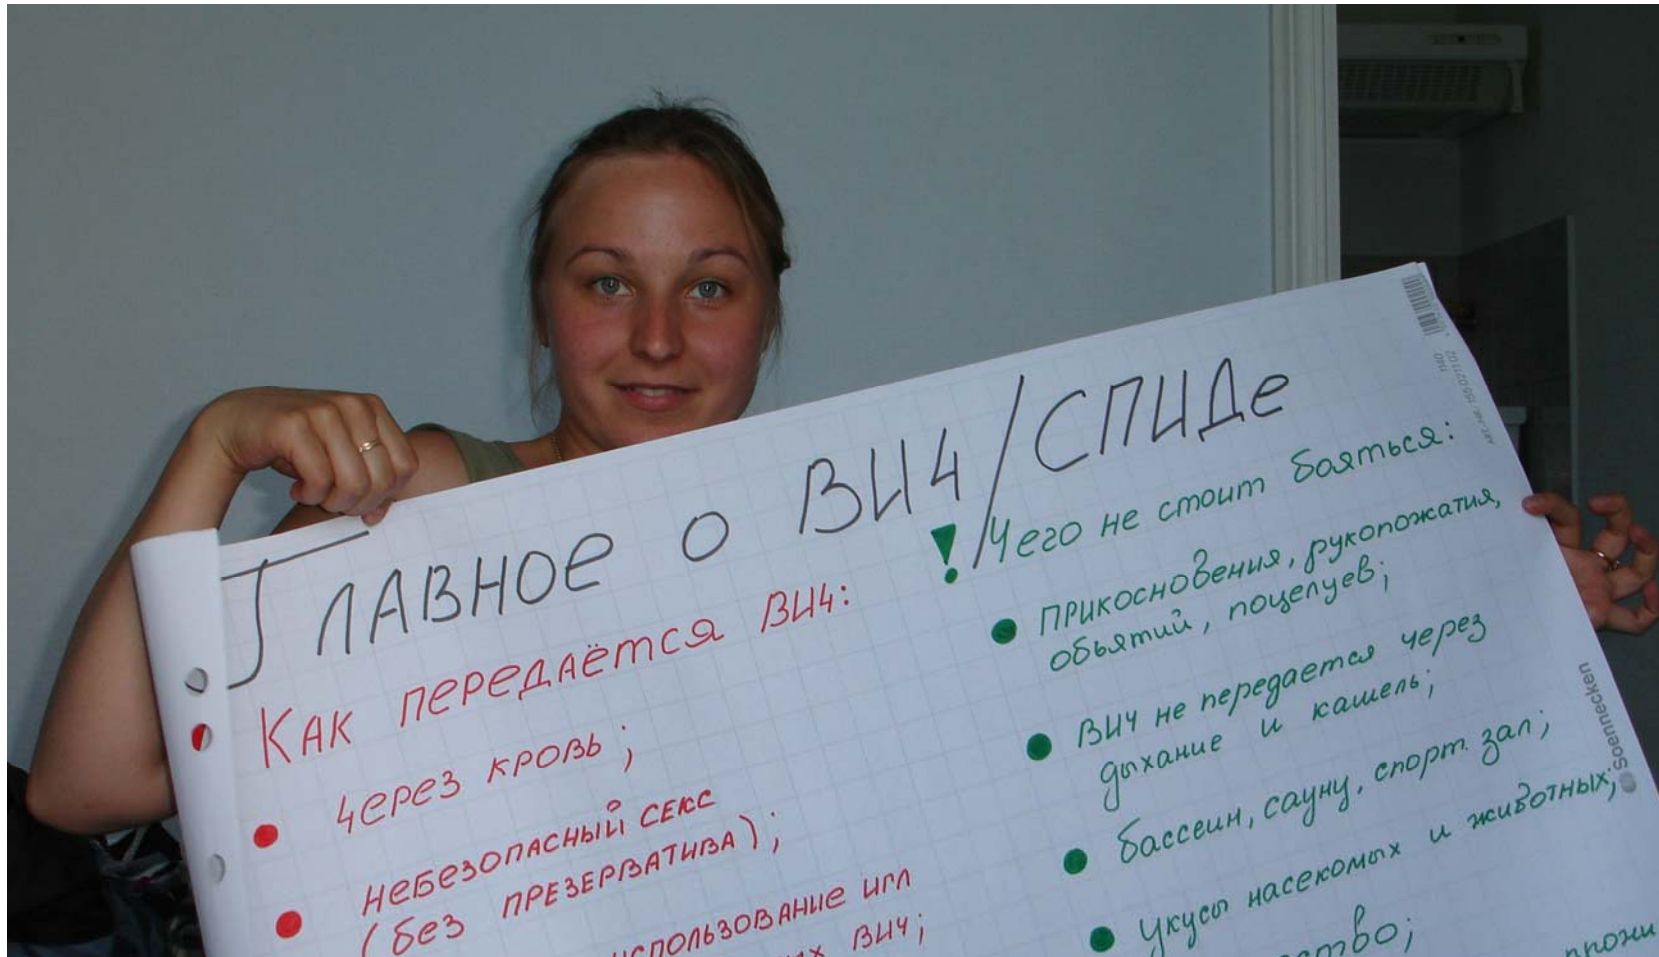 Главное о ВИЧ/СПИДе
Как передаётся ВИЧ:
через кровь;
небезопасный секс
(без презерватива);
использование игл
ВИЧ;
! Чего не стоит бояться:
прикосновения, рукопожатия,
обьятий, поцелуев;
ВИЧ не передается через
дыхание и кашель;
бассеин, сауну, спорт. зал;
укусы насекомых и животных;
Soennecken